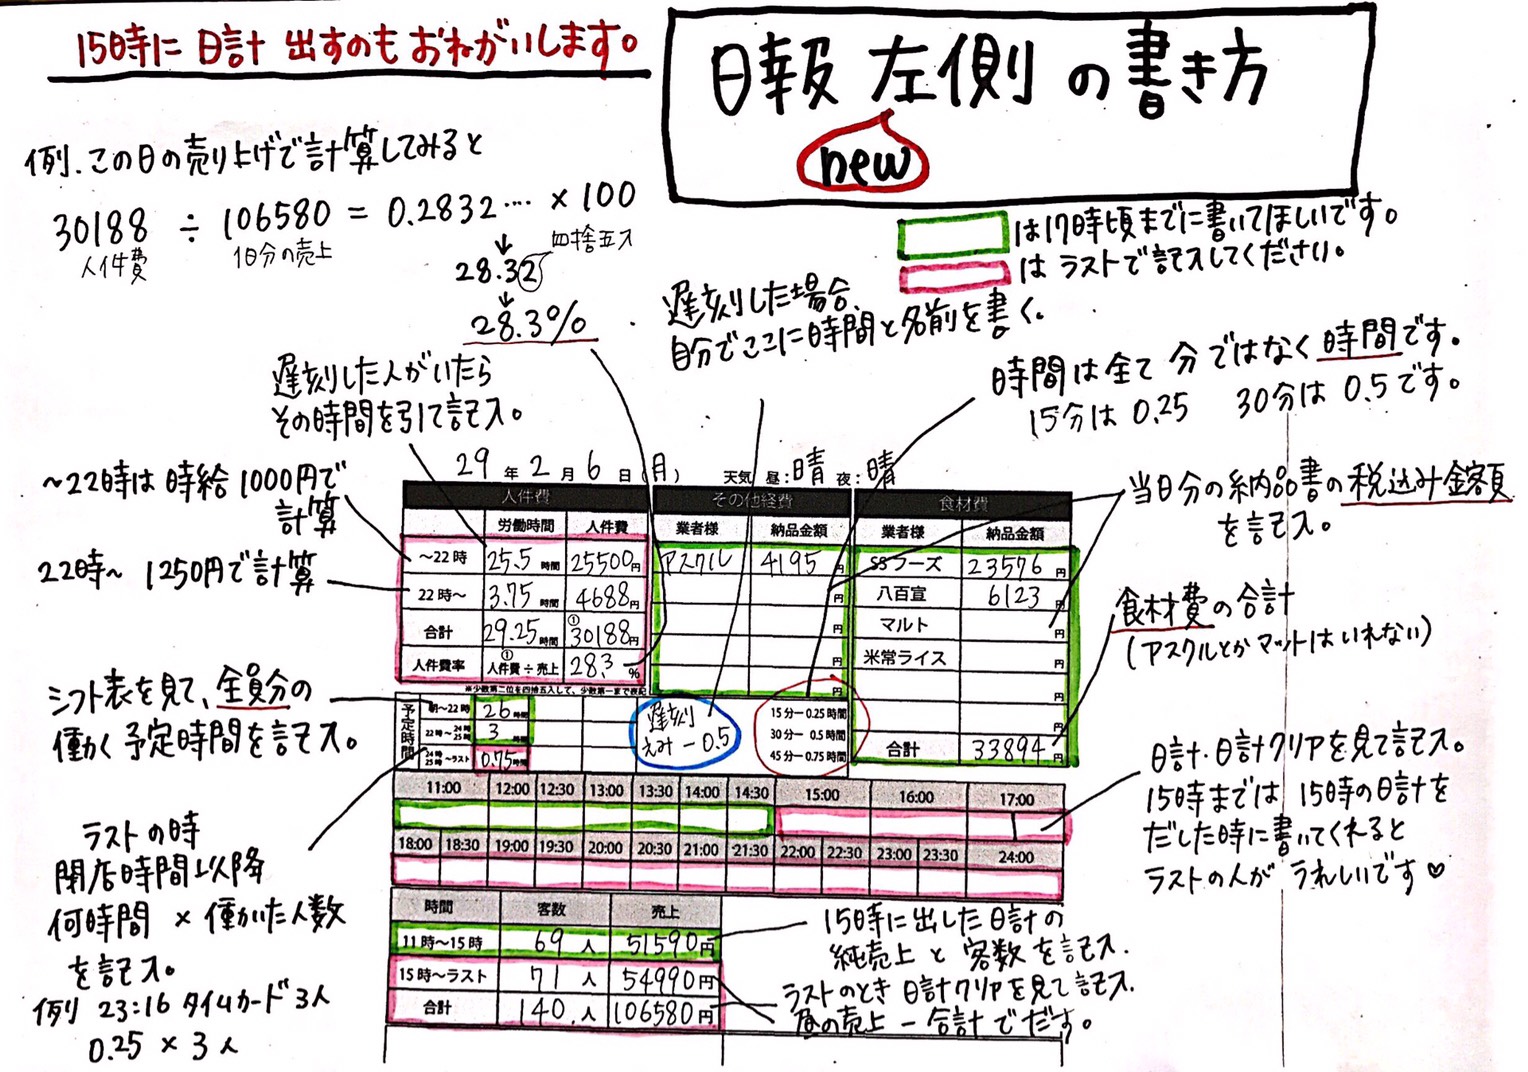 15時に日計出すのもおねがいします。
日報 左側 の書き方
new
例.この日の売り上げで計算してみると
30188 ÷ 106580 = 0.2832‥‥ × 100
人件費 1日分の売上 四捨五入
28.32
28.3%
は17時頃までに書いてほしいです。
は ラストで記入してください。
遅刻した場合、
自分でここに時間と名前を書く。
時間は全て 分ではなく時間です。
15分は 0.25 30分は 0.5です。
遅刻した人がいたら
その時間を引て記入。
〜22時は 時給1000円で
計算
22時〜 1250円で計算
当日分の納品書の税込み金額
を記入。
食材費の合計
(アスクルとかマットはいれない)
シフト表を見て、全員分の
働く予定時間を記入。
ラストの時
閉店時間以降
何時間 × 働いた人数
を記入。
例 23:16 タイムカード3人
0.25 × 3人
日計・日計クリアを見て記入。
15時までは 15時の日計を
だした時に書いてくれると
ラストの人が うれしいです♡
29 年 2 月 6 日 (月) 天気 昼:晴 夜:晴
人件費 その他経費 食材費
労働時間 人件費 業者様 納品金額 業者様 納品金額
〜22時 25.5 時間 25500円 アスクル 4195 円 SSフーズ 23576 円
22時〜 3.75 時間 4688円 円 八百宣 6123 円
合計 29.25 時間 ① 30188円 円 マルト 円
人件費率 ① 人件費÷売上 28.3 % 円 米常ライス 円
※少数第二位を四捨五入して、少数第一まで表記 円
予定時間
朝〜22時 26 時間
22時〜24時 25時 3 時間
24時 25時〜ラスト 0.75 時間
遅刻
えみ −0.5
15分―0.25時間
30分― 0.5時間
45分―0.75時間
円
合計 33894 円
11:00 12:00 12:30 13:00 13:30 14:00 14:30 15:00 16:00 17:00
18:00 18:30 19:00 19:30 20:00 20:30 21:00 21:30 22:00 22:30 23:00 23:30 24:00
時間 客数 売上
11時〜15時 69 人 51590円
15時〜ラスト 71 人 54990円
合計 140. 人 106580円
15時に出した日計の
純売上 と 客数を記入.
ラストのとき 日計クリアを見て記入.
昼の売上 − 合計でだす。